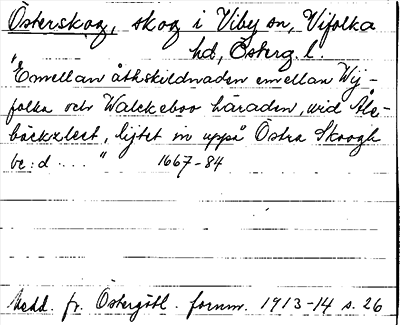 Österskog, skog i Viby sn, Vifolka
hd, Österg. l.
"Emellan åthskildnaden emellan Wij-
folka och Walckeboo häraden, wid Åle-
bäckzleet, lijtet in uppå Östra Skoogh
be:d ...." 1667-84
Medd. fr. Östergötl. fornm. 1913-14 s. 26